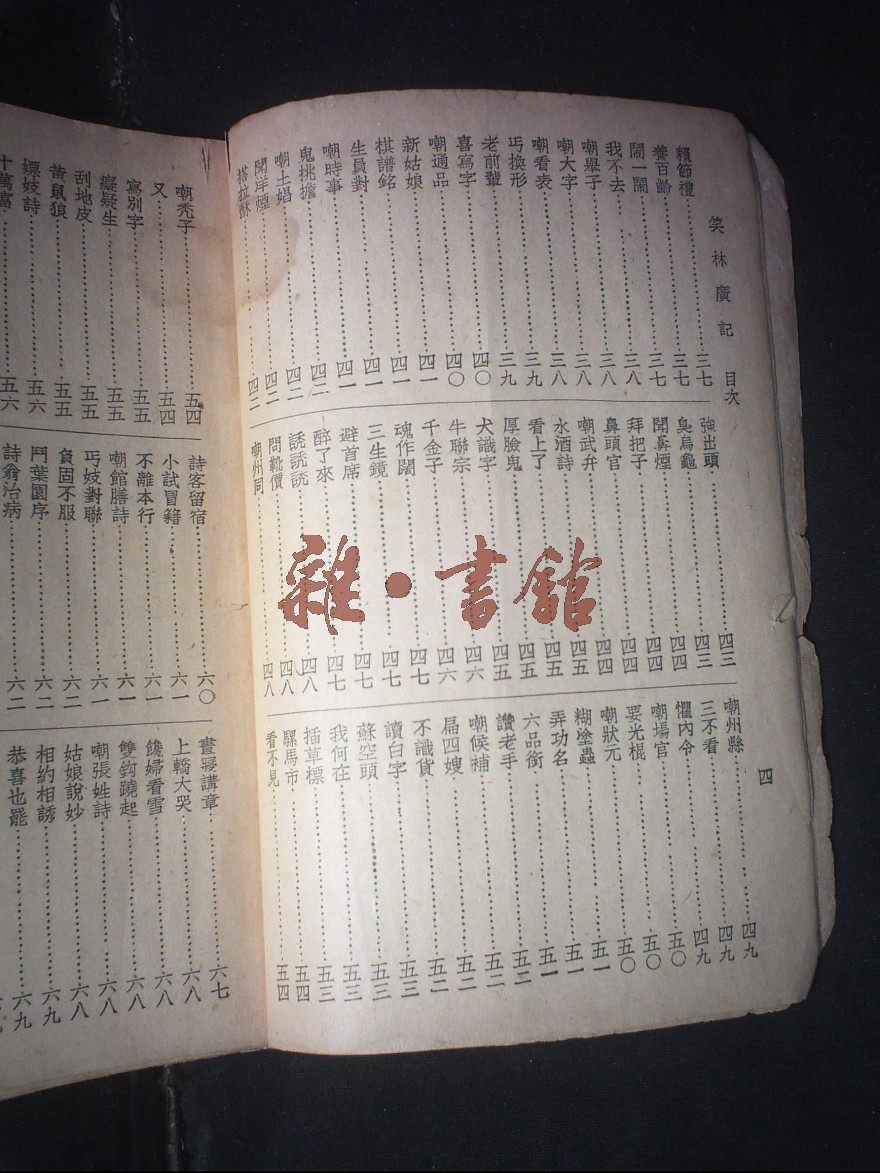 笑林廣記 目次
四
賴節禮 三七
養百齡 三七
鬧一鬧 三七
我不去 三八
嘲舉子 三八
嘲大字 三八
嘲看表 三九
丐換形 三九
老前輩 四〇
喜寫字 四〇
嘲通品 四一
新姑娘 四一
棋譜銘 四一
生員對 四一
嘲時事 四二
鬼挑擔 四二
嘲土娼 四二
開洋煙 四二
搭拉酥 四二
強出頭 四三
臭烏龜 四三
聞鼻煙 四四
拜把子 四四
鼻頭官 四四
嘲武弁 四四
水酒詩 四五
看上了 四五
厚臉鬼 四五
犬識字 四五
牛聯宗 四六
千金子 四六
魂作鬧 四七
三生鏡 四七
避首席 四七
醉了來 四七
誘誘誘 四八
問靴價 四八
嘲州同 四八
嘲州縣 四九
三不看 四九
懼內令 四九
嘲場官 五〇
耍光棍 五〇
嘲狀元 五〇
糊塗蟲 五一
弄功名 五一
六品銜 五一
讚老手 五二
嘲候補 五二
扁四嫂 五二
不識貨 五二
讀白字 五三
蘇空頭 五三
我何在 五三
插草標 五三
騾馬市 五四
看不見 五四
嘲禿子 五四
又 五四
寫別字 五五
癡疑生 五五
刮地皮 五五
黃鼠狼 五五
嫖妓詩 五六
十萬富 五六
詩客留宿 六〇
小試冒籍 六一
不離本行 六一
嘲館膳詩 六一
丐妓對聯 六一
負固不服 六二
鬥葉園序 六二
詩翁治病 六二
晝寢講章 六七
上轎大哭 六八
饞婦看雪 六八
雙鈎蹺起 六八
嘲張姓詩 六八
姑娘說妙 六八
相約相誘 六九
恭喜也罷 六九
雜·書館